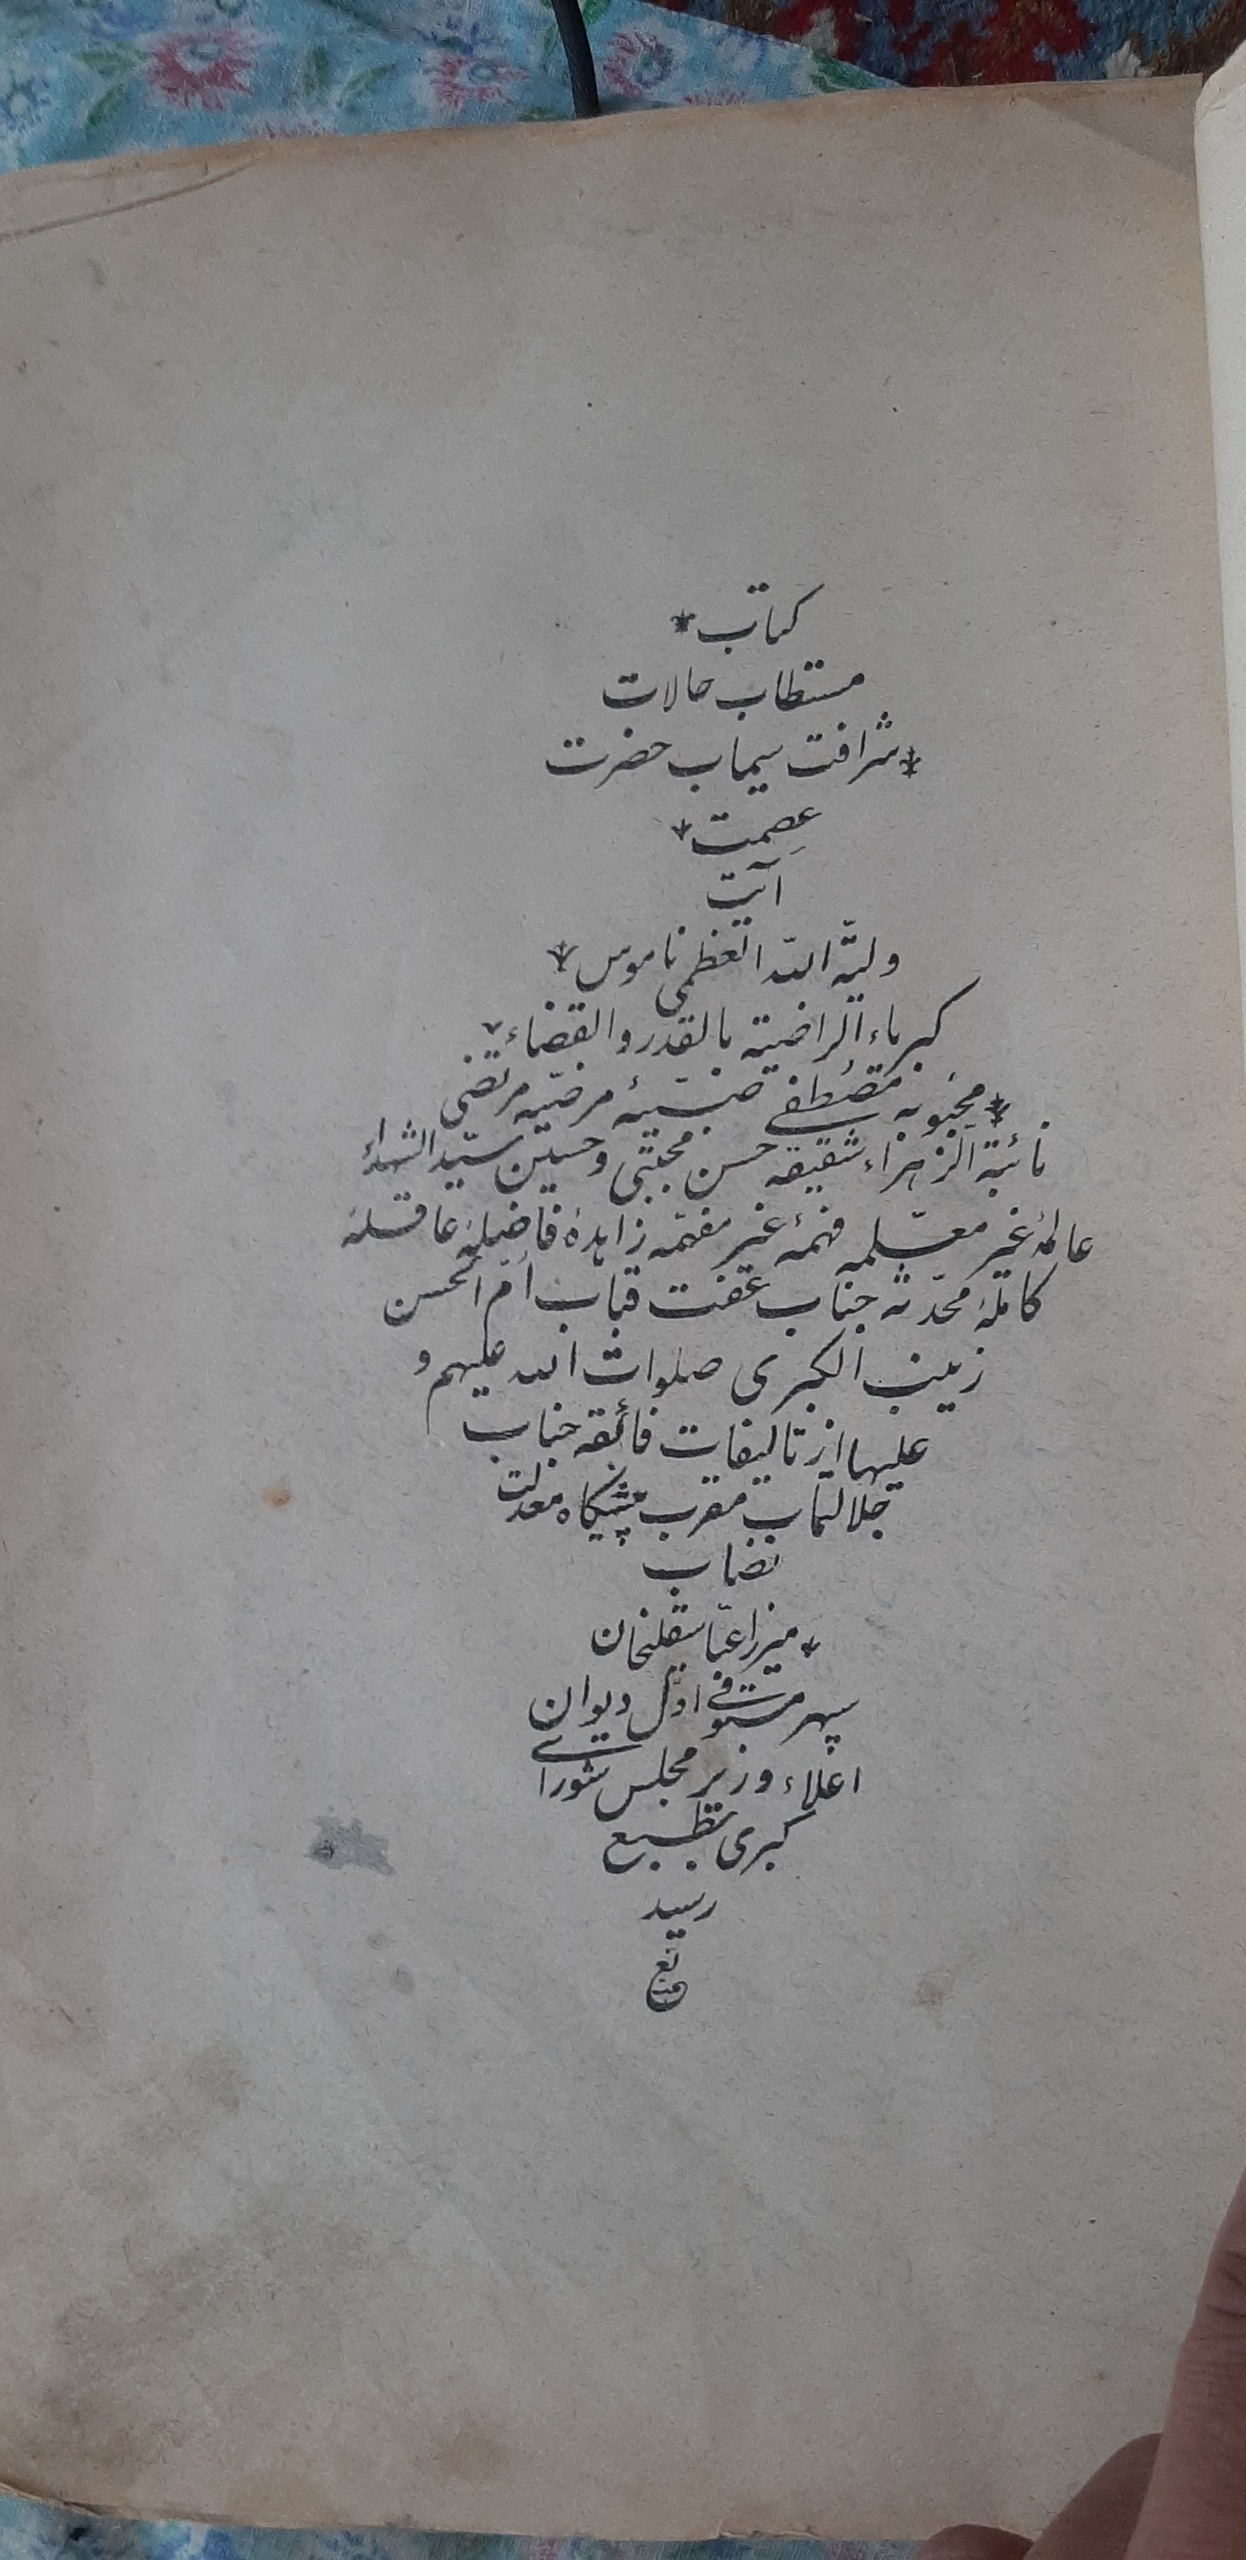 کتاب *
مستطاب حالات
* شرافت سیماب حضرت
عصمت *
آیت
ولیّة الله العظمی ناموس *
کبریاء الراضیة بالقدر و القضاء
* محبوبه مصطفی صفیّهٔ مرضیّه مرتضی
نائبة الزهراء شقیقه حسن مجتبی و حسین سیّد الشهداء
عالمهٔ غیر معلّمه فهمهٔ غیر مفهّمه زاهدهٔ فاضلهٔ عاقلهٔ
کاملهٔ محدّثه جناب عفت قباب اُمّ الحسن
زینب الکبری صلوات الله علیهم و
علیها از تالیفات فائقه جناب
جلالتماب مقرب پیشکاه معدلت
نصاب
* میرزا عباسقلیخان
سپهر مستوفی اوّل دیوان
اعلاء وزیر مجلس شورای
کبری بطبع
رسید